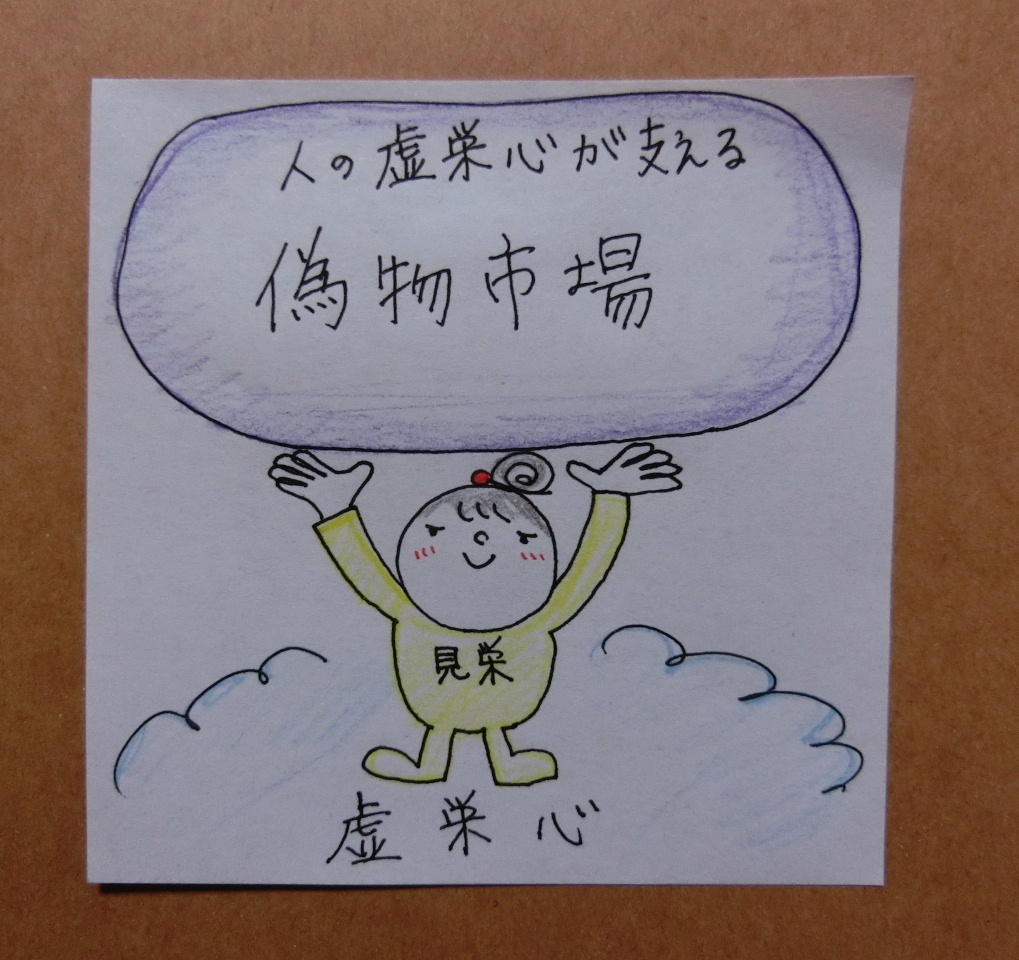 人の虚栄心が支える
偽物市場
見栄
虚栄心